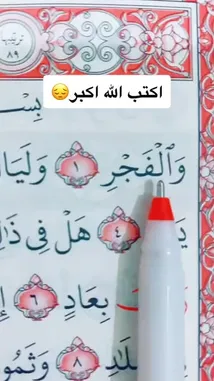 ترتيبها
٨٩
اكتب الله اكبر😔
بِسْـ
وَٱلْفَجْرِ ١ وَلَيَا
٤ هَلْ فِي ذَٰلِ
بِعَادٍ ٦ إِ
٨ وَثَمُو